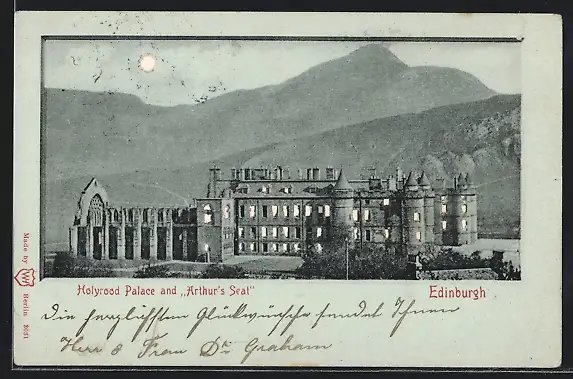 Holyrood Palace and „Arthur's Seat"
Edinburgh
Die herzlichsten Glückwünsche sendet Ihnen
Herr & Frau Dr Graham
Made by W Berlin 2051